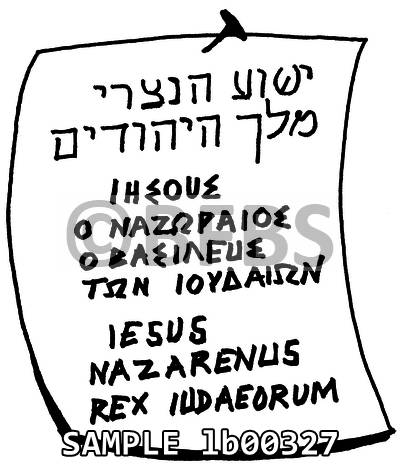 ישוע הנצרי
מלך היהודים
ΙΗΣΟΥΣ
Ο ΝΑΖΩΡΑΙΟΣ
Ο ΒΑΣΙΛΕΥΣ
ΤΩΝ ΙΟΥΔΑΙΩΝ
©BFBS
IESUS
NAZARENUS
REX IUDAEORUM
SAMPLE lb00327